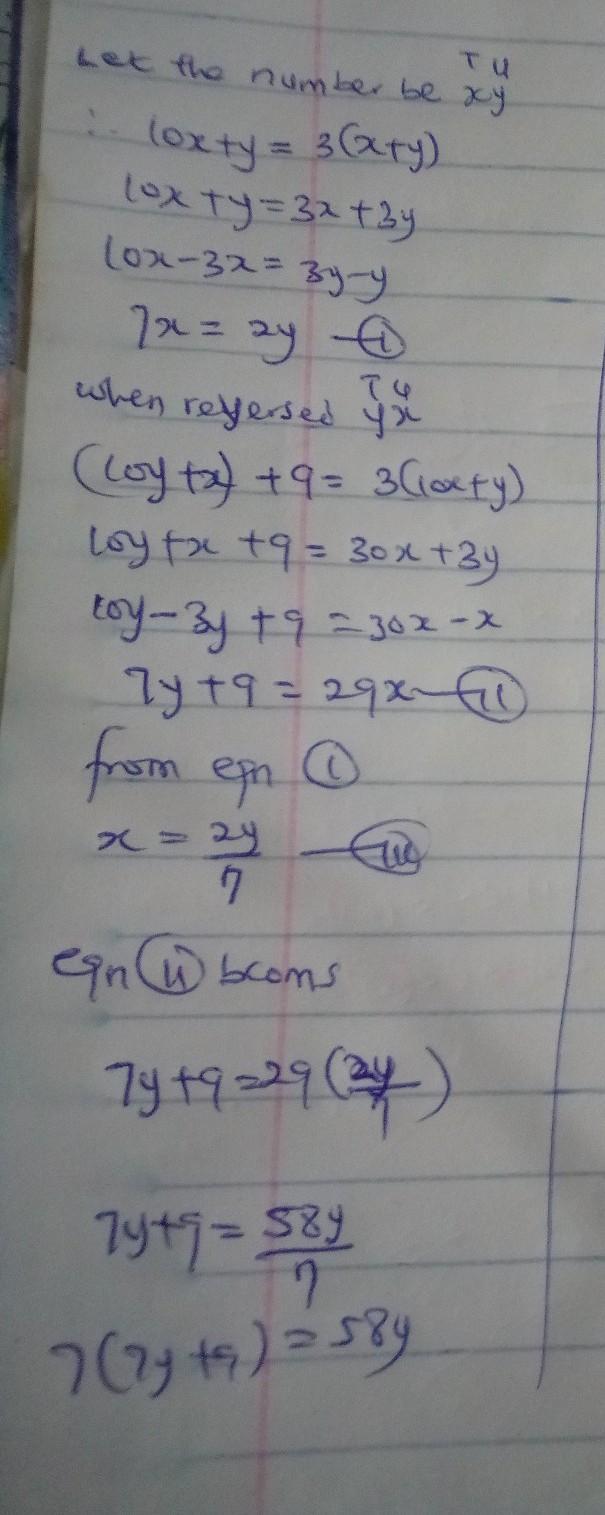 Let the number be xy
T U
∴ 10x+y = 3(x+y)
10x+y=3x+3y
10x-3x= 3y-y
7x = 2y —(i)
when reversed yx
T U
(10y+x) +9= 3(10x+y)
10y+x +9 = 30x+3y
10y-3y +9 =30x-x
7y+9 = 29x—(ii)
from eqn (i)
x = 2y/7 —(iii)
eqn (ii) bcoms
7y+9=29(2y/7)
7y+9= 58y/7
7(7y+9)=58y